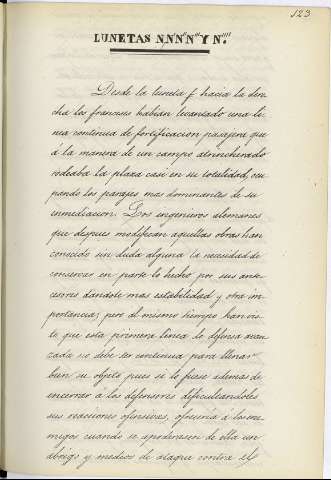 123
LUNETAS N,N',N'',N''' Y N''''
Desde la luneta f hacia la dere-
cha los franceses habian levantado una li-
nea continua de fortificacion pasagera que
á la manera de un campo atrincherado
rodeaba la plaza casi en su totalidad, ocu-
pando los parajes mas dominantes de su
inmediacion. Los ingenieros alemanes
que despues modifican aquellas obras han
conocido sin duda alguna la necesidad de
conservar en parte lo hecho por sus ante-
cesores dandole mas estabilidad y otra im-
portancia; pero al mismo tiempo han vis-
to que esta primera linea de defensa avan-
zada no debe ser continua para llenar
bien su objeto pues si lo fuese ademas de
encerrar á los defensores dificultandoles
sus reacciones ofensivas, ofreceria á los ene-
migos cuando se apoderasen de ella un
abrigo y medios de ataque contra el